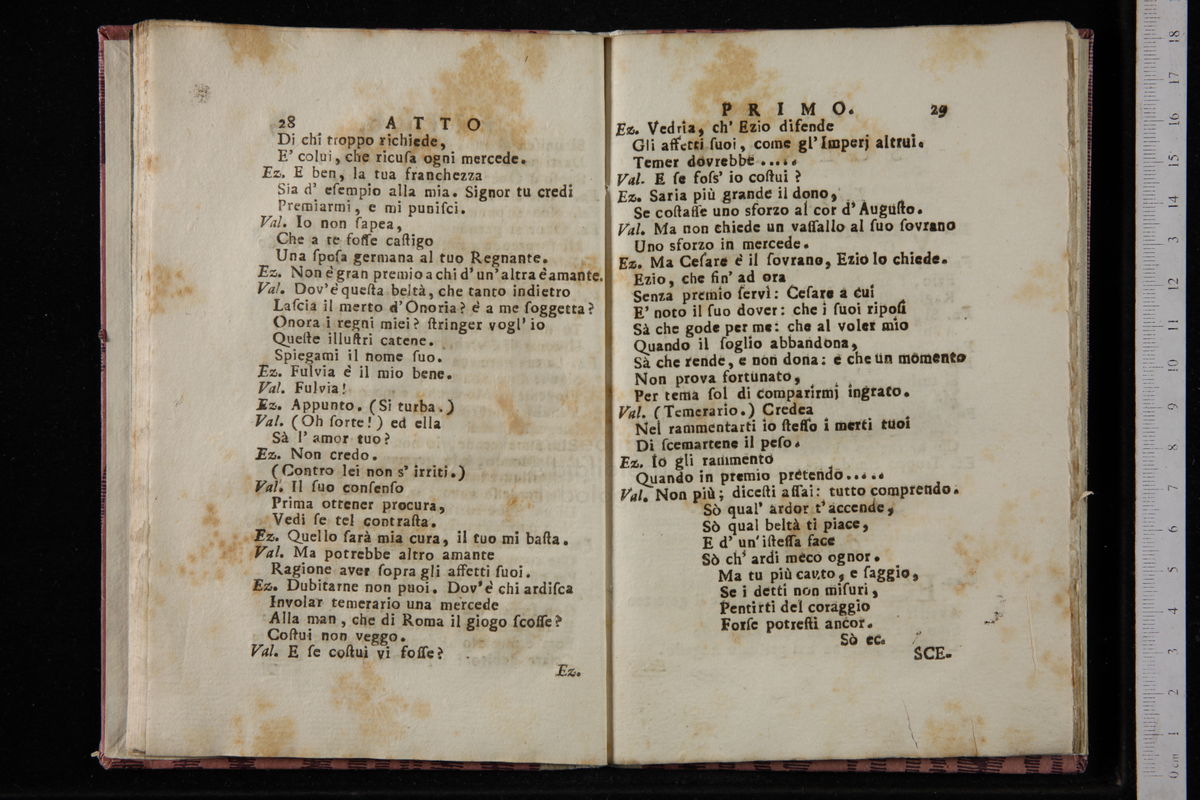 28 ATTO
Di chi troppo richiede,
E' colui, che ricuſa ogni mercede.
Ez. E ben, la tua franchezza
Sia d' eſempio alla mia. Signor tu credi
Premiarmi, e mi puniſci.
Val. Io non ſapea,
Che a te foſſe caſtigo
Una ſpoſa germana al tuo Regnante.
Ez. Non è gran premio a chi d' un' altra è amante.
Val. Dov' è queſta beltà, che tanto indietro
Laſcia il merto d' Onoria? è a me ſoggetta?
Onora i regni miei? ſtringer vogl' io
Queſte illuſtri catene.
Spiegami il nome ſuo.
Ez. Fulvia è il mio bene.
Val. Fulvia!
Ez. Appunto. (Si turba.)
Val. (Oh ſorte!) ed ella
Sà l' amor tuo?
Ez. Non credo.
(Contro lei non s' irriti.)
Val. Il ſuo conſenſo
Prima ottener procura,
Vedi ſe tel contraſta.
Ez. Quello ſarà mia cura, il tuo mi baſta.
Val. Ma potrebbe altro amante
Ragione aver ſopra gli affetti ſuoi.
Ez. Dubitarne non puoi. Dov' è chi ardiſca
Involar temerario una mercede
Alla man, che di Roma il giogo ſcoſſe?
Coſtui non veggo.
Val. E ſe coſtui vi foſſe?
Ez.
PRIMO. 29
Ez. Vedria, ch' Ezio difende
Gli affetti ſuoi, come gl' Imperj altrui.
Temer dovrebbe .....
Val. E ſe foſs' io coſtui?
Ez. Saria più grande il dono,
Se coſtaſſe uno sforzo al cor d' Auguſto.
Val. Ma non chiede un vaſſallo al ſuo ſovrano
Uno sforzo in mercede.
Ez. Ma Ceſare è il ſovrano, Ezio lo chiede.
Ezio, che fin' ad ora
Senza premio ſervì: Ceſare a cui
E' noto il ſuo dover: che i ſuoi ripoſi
Sà che gode per me: che al voler mio
Quando il ſoglio abbandona,
Sà che rende, e non dona: e che un momento
Non prova fortunato,
Per tema ſol di comparirmi ingrato.
Val. (Temerario.) Credea
Nel rammentarti io ſteſſo i merti tuoi
Di ſcemartene il peſo.
Ez. Io gli rammento
Quando in premio pretendo.....
Val. Non più; diceſti aſſai: tutto comprendo.
Sò qual' ardor t' accende,
Sò qual beltà ti piace,
E d' un' iſteſſa face
Sò ch' ardi meco ognor.
Ma tu più cauto, e ſaggio,
Se i detti non miſuri,
Pentirti del coraggio
Forſe potreſti ancor.
Sò ec.
SCE-
0 cm 1 2 3 4 5 6 7 8 9 10 11 12 13 14 15 16 17 18